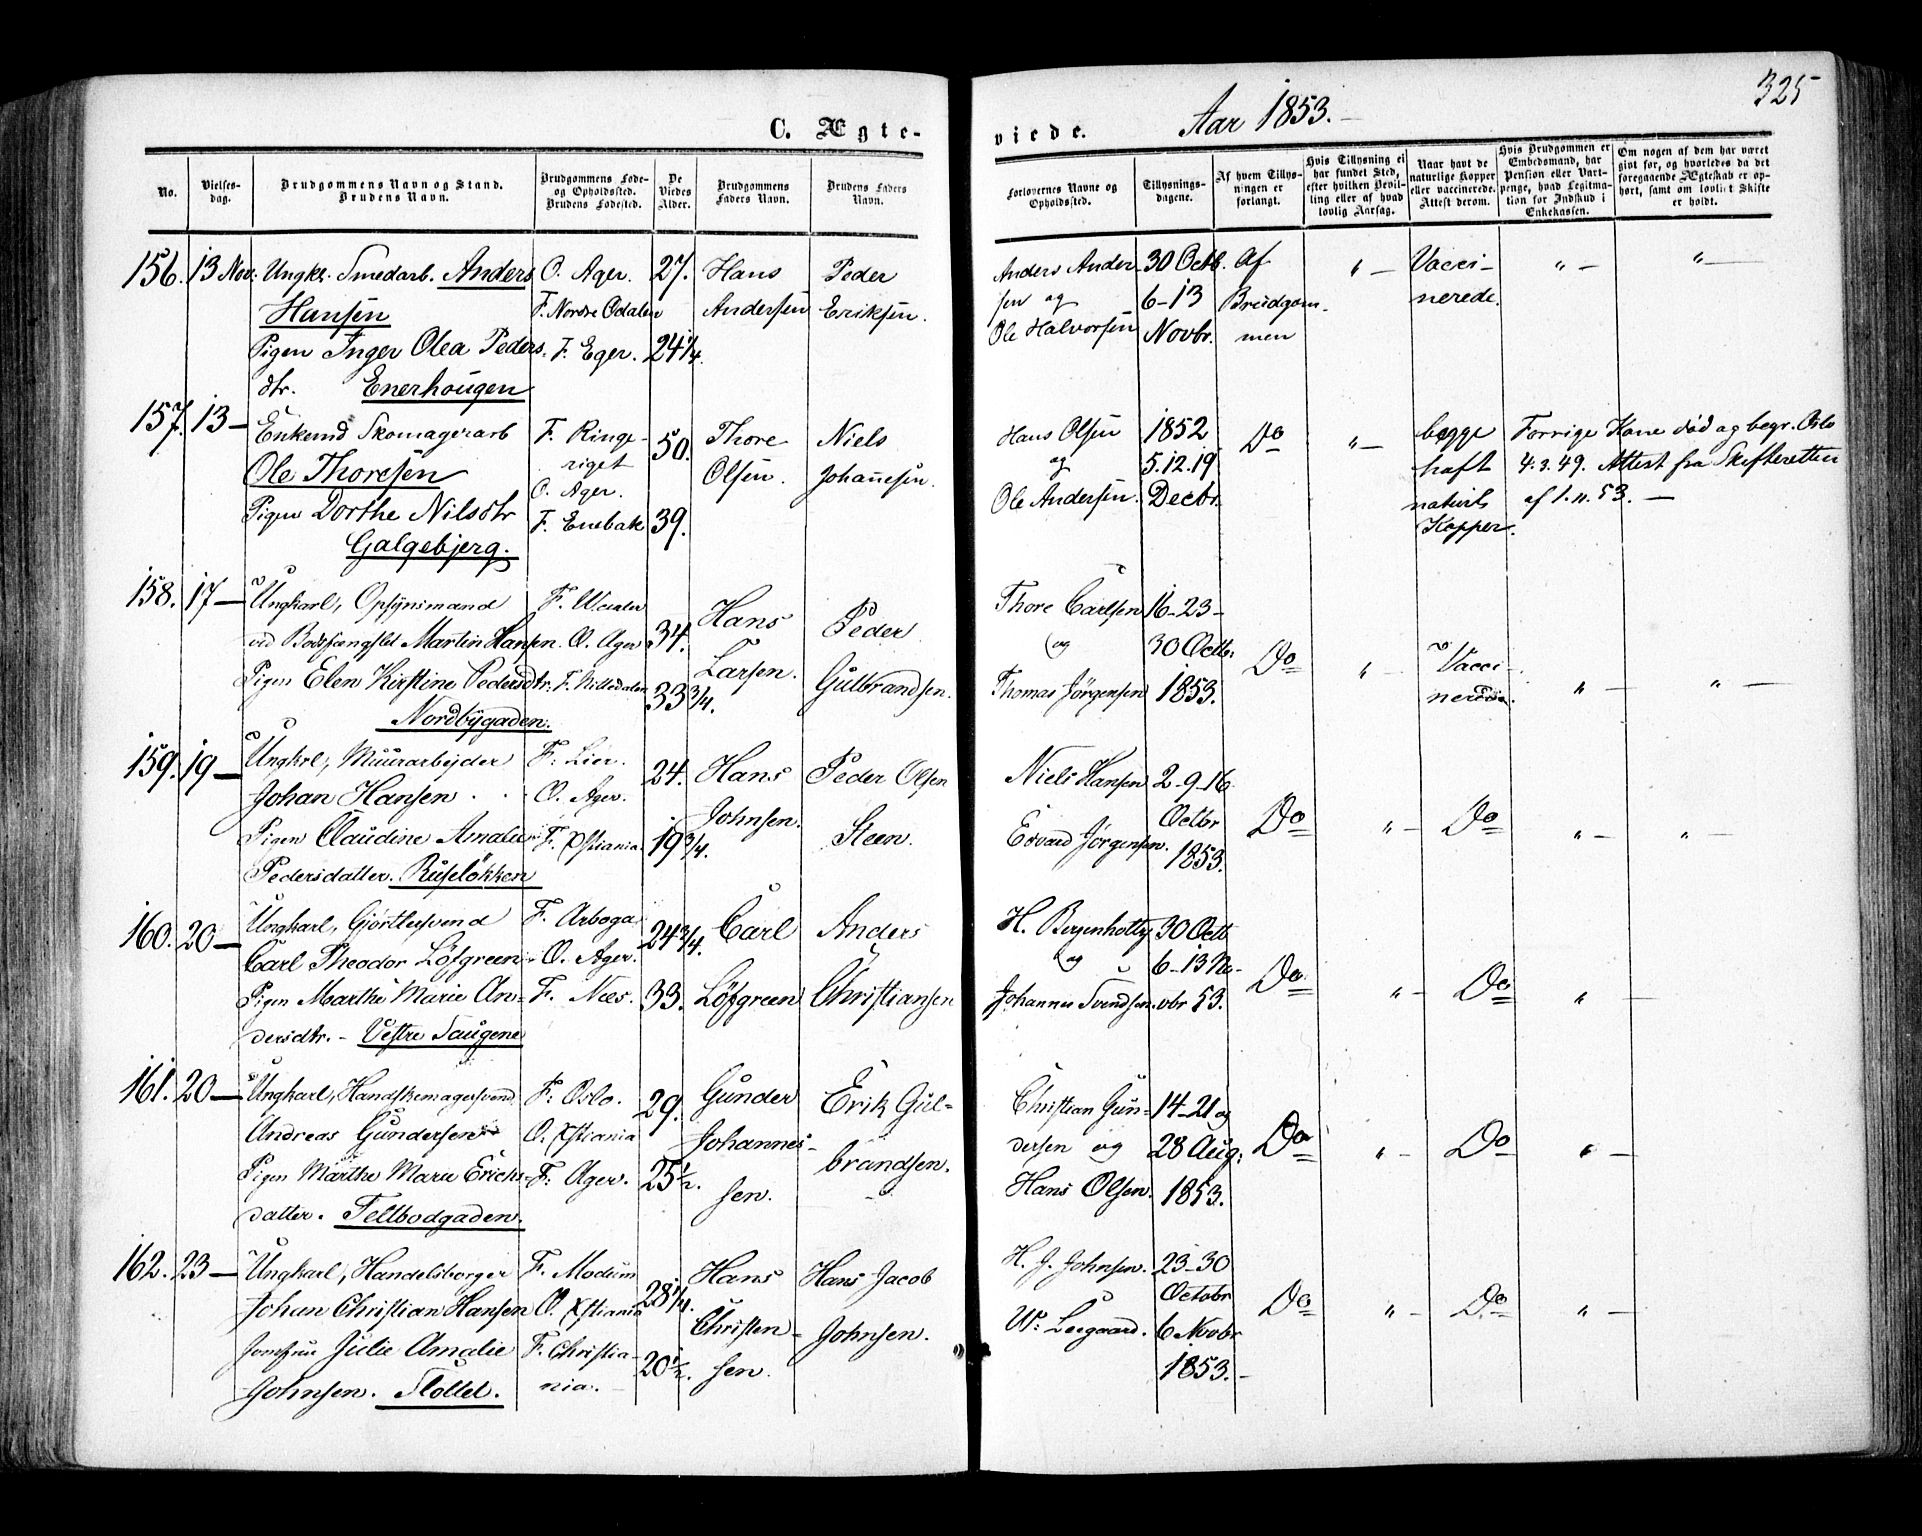 325
C. Ægte-
viede.
Aar 1853.
No.
Vielses-
dag.
Brudgommens Navn og Stand.
Brudens Navn.
Brudgommens Føde-
og Opholdssted.
Brudens Fødested.
De
Viedes
Alder.
Brudgommens
Faders Navn.
Brudens Faders
Navn.
Forlovernes Navne og
Opholdssted.
Tillysnings-
dagene.
Af hvem Tillys-
ningen er
forlangt.
Hvis Tillysning ei
har fundet Sted,
efter hvilken Bevil-
ling eller af hvad
lovlig Aarsag.
Naar havt de
naturlige Kopper
eller vaccinerede.
Attest derom.
Hvis Brudgommen er
Embedsmand, har
Pension eller Vart-
penge, hvad Legitima-
tion for Indskud i
Enkekassen.
Om nogen af dem har været
gift før, og hvorledes da det
foregaaende Ægteskab er op-
hørt, samt om lovligt Skifte
er holdt.
156. 13 Nov: Ungkr. Smedarb. Anders O. Ager. 27. Hans Peder
Hansen F. Nordre Odalen Andersen Eriksen.
Pigen Inger Olea Peders- F. Eger. 24 1/4.
dtr. Enerhougen
Anders Ander- 30 Octb. Af " — Vacci- " — " —
sen og 6-13 Brudgom- nerede.
Ole Halvorsen Novbr. men
157. 13 — Enkemd Skomagerarb F. Ringe- 50. Thore Niels
Ole Thoresen riget Olsen. Johannesen.
O. Ager.
Pigen Dorthe Nilsdtr F. Enebak 39.
Galgebjerg.
Hans Olsen 1852 Do " — begge Forrige Kone død og begr. Oslo
og 5.12.19 haft 4.3.49. Attest fra Skifteretten
Ole Andersen. Decbr. naturl. af 1.11.53. —
Kopper.
158. 17 — Ungkarl, Opsynsmand F. 34. Hans Peder
ved Bodsfængslet Martin Hansen. O. Ager Larsen. Gulbrandsen.
Pigen Elen Kirstine Pedersdtr. F. Nittedalen 33 3/4.
Nordbygaden.
Thore Carlsen 16-23-
og 30 Octb. Do " Vacci-
Thomas Jørgensen 1853. nerede. " — " —
159. 19 — Ungkrl, Muurarbeyder F. Lier. 24. Hans Peder Olsen
Johan Hansen O. Ager. Johnsen. Steen.
Pigen Claudine Amalie F. Xstiania. 19 3/4.
Pedersdatter. Ruseløkken
Niels Hansen 2-9-16
Octbr Do " — Do " — " —
Edvard Jørgensen. 1853.
160. 20 — Ungkarl, Gjørtlersvend F. Arboga 24 3/4. Carl Anders
Carl Theodor Löfgreen O. Ager. Löfgreen Christiansen
Pigen Marthe Marie An- F. Næs. 33.
dersdtr. - Vestre Saugene
H. 30 Octb
og 6-13 No- Do " — Do " —
Johannes Svendsen. vbr 53.
161. 20 — Ungkarl, Handskemagersvend F. Oslo. 29. Gunder Erik Gul-
Andreas Gundersen O. Xstiania Johannes- brandsen.
Pigen Marthe Marie Erichs- F. Ager. 25 1/2. sen.
datter. Teltbodgaden.
Christian Gun- 14-21 og
dersen og 28 Aug: Do " — Do " —
Hans Olsen. 1853.
162. 23 — Ungkarl, Handelsborger F. Modum 28 1/4. Hans Hans Jacob
Johan Christian Hansen O. Xstiania Christen- Johnsen.
Jomfrue Julie Amalie F. Christia- 20 1/2. sen.
Johnsen. Slottet. nia.
H. J. Johnsen. 23-30
Octobr Do " — Do " —
6 Novbr
1853.